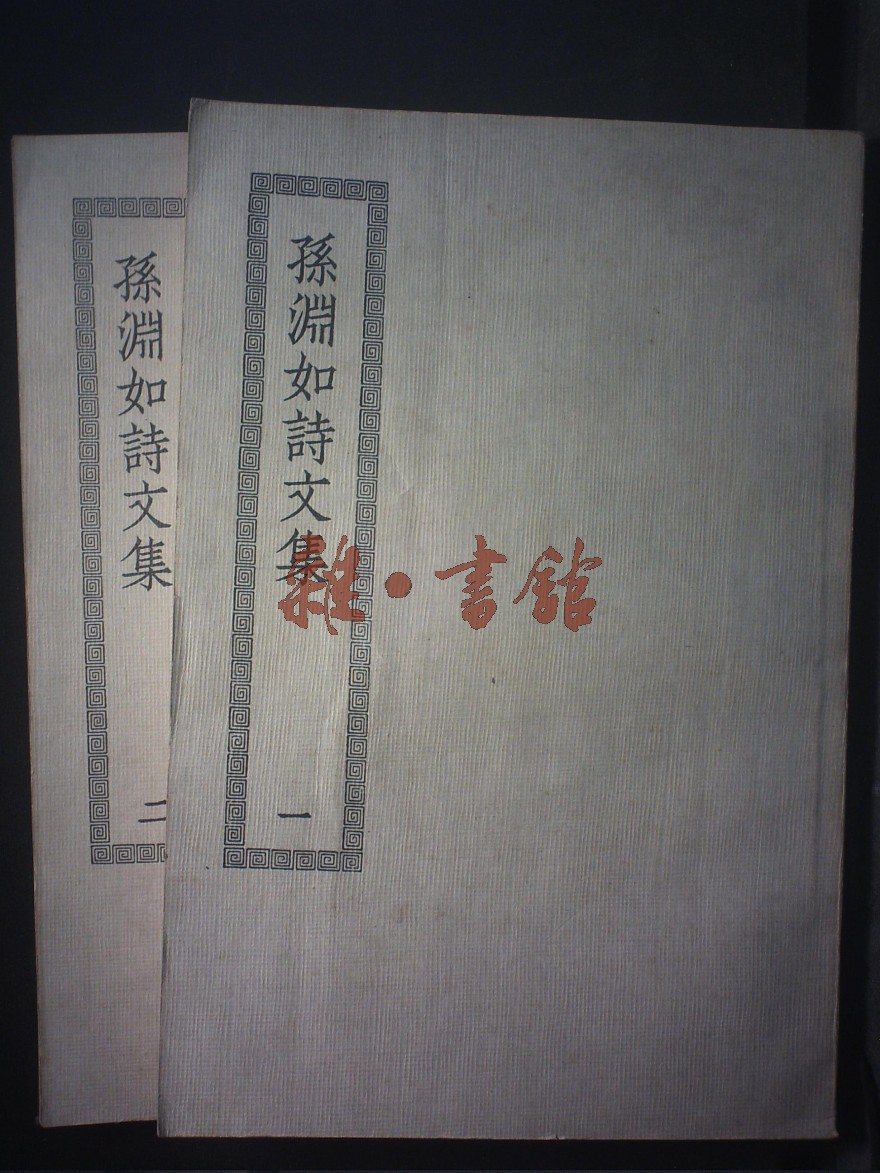 孫淵如詩文集
一
孫淵如詩文集
二
雜·書館